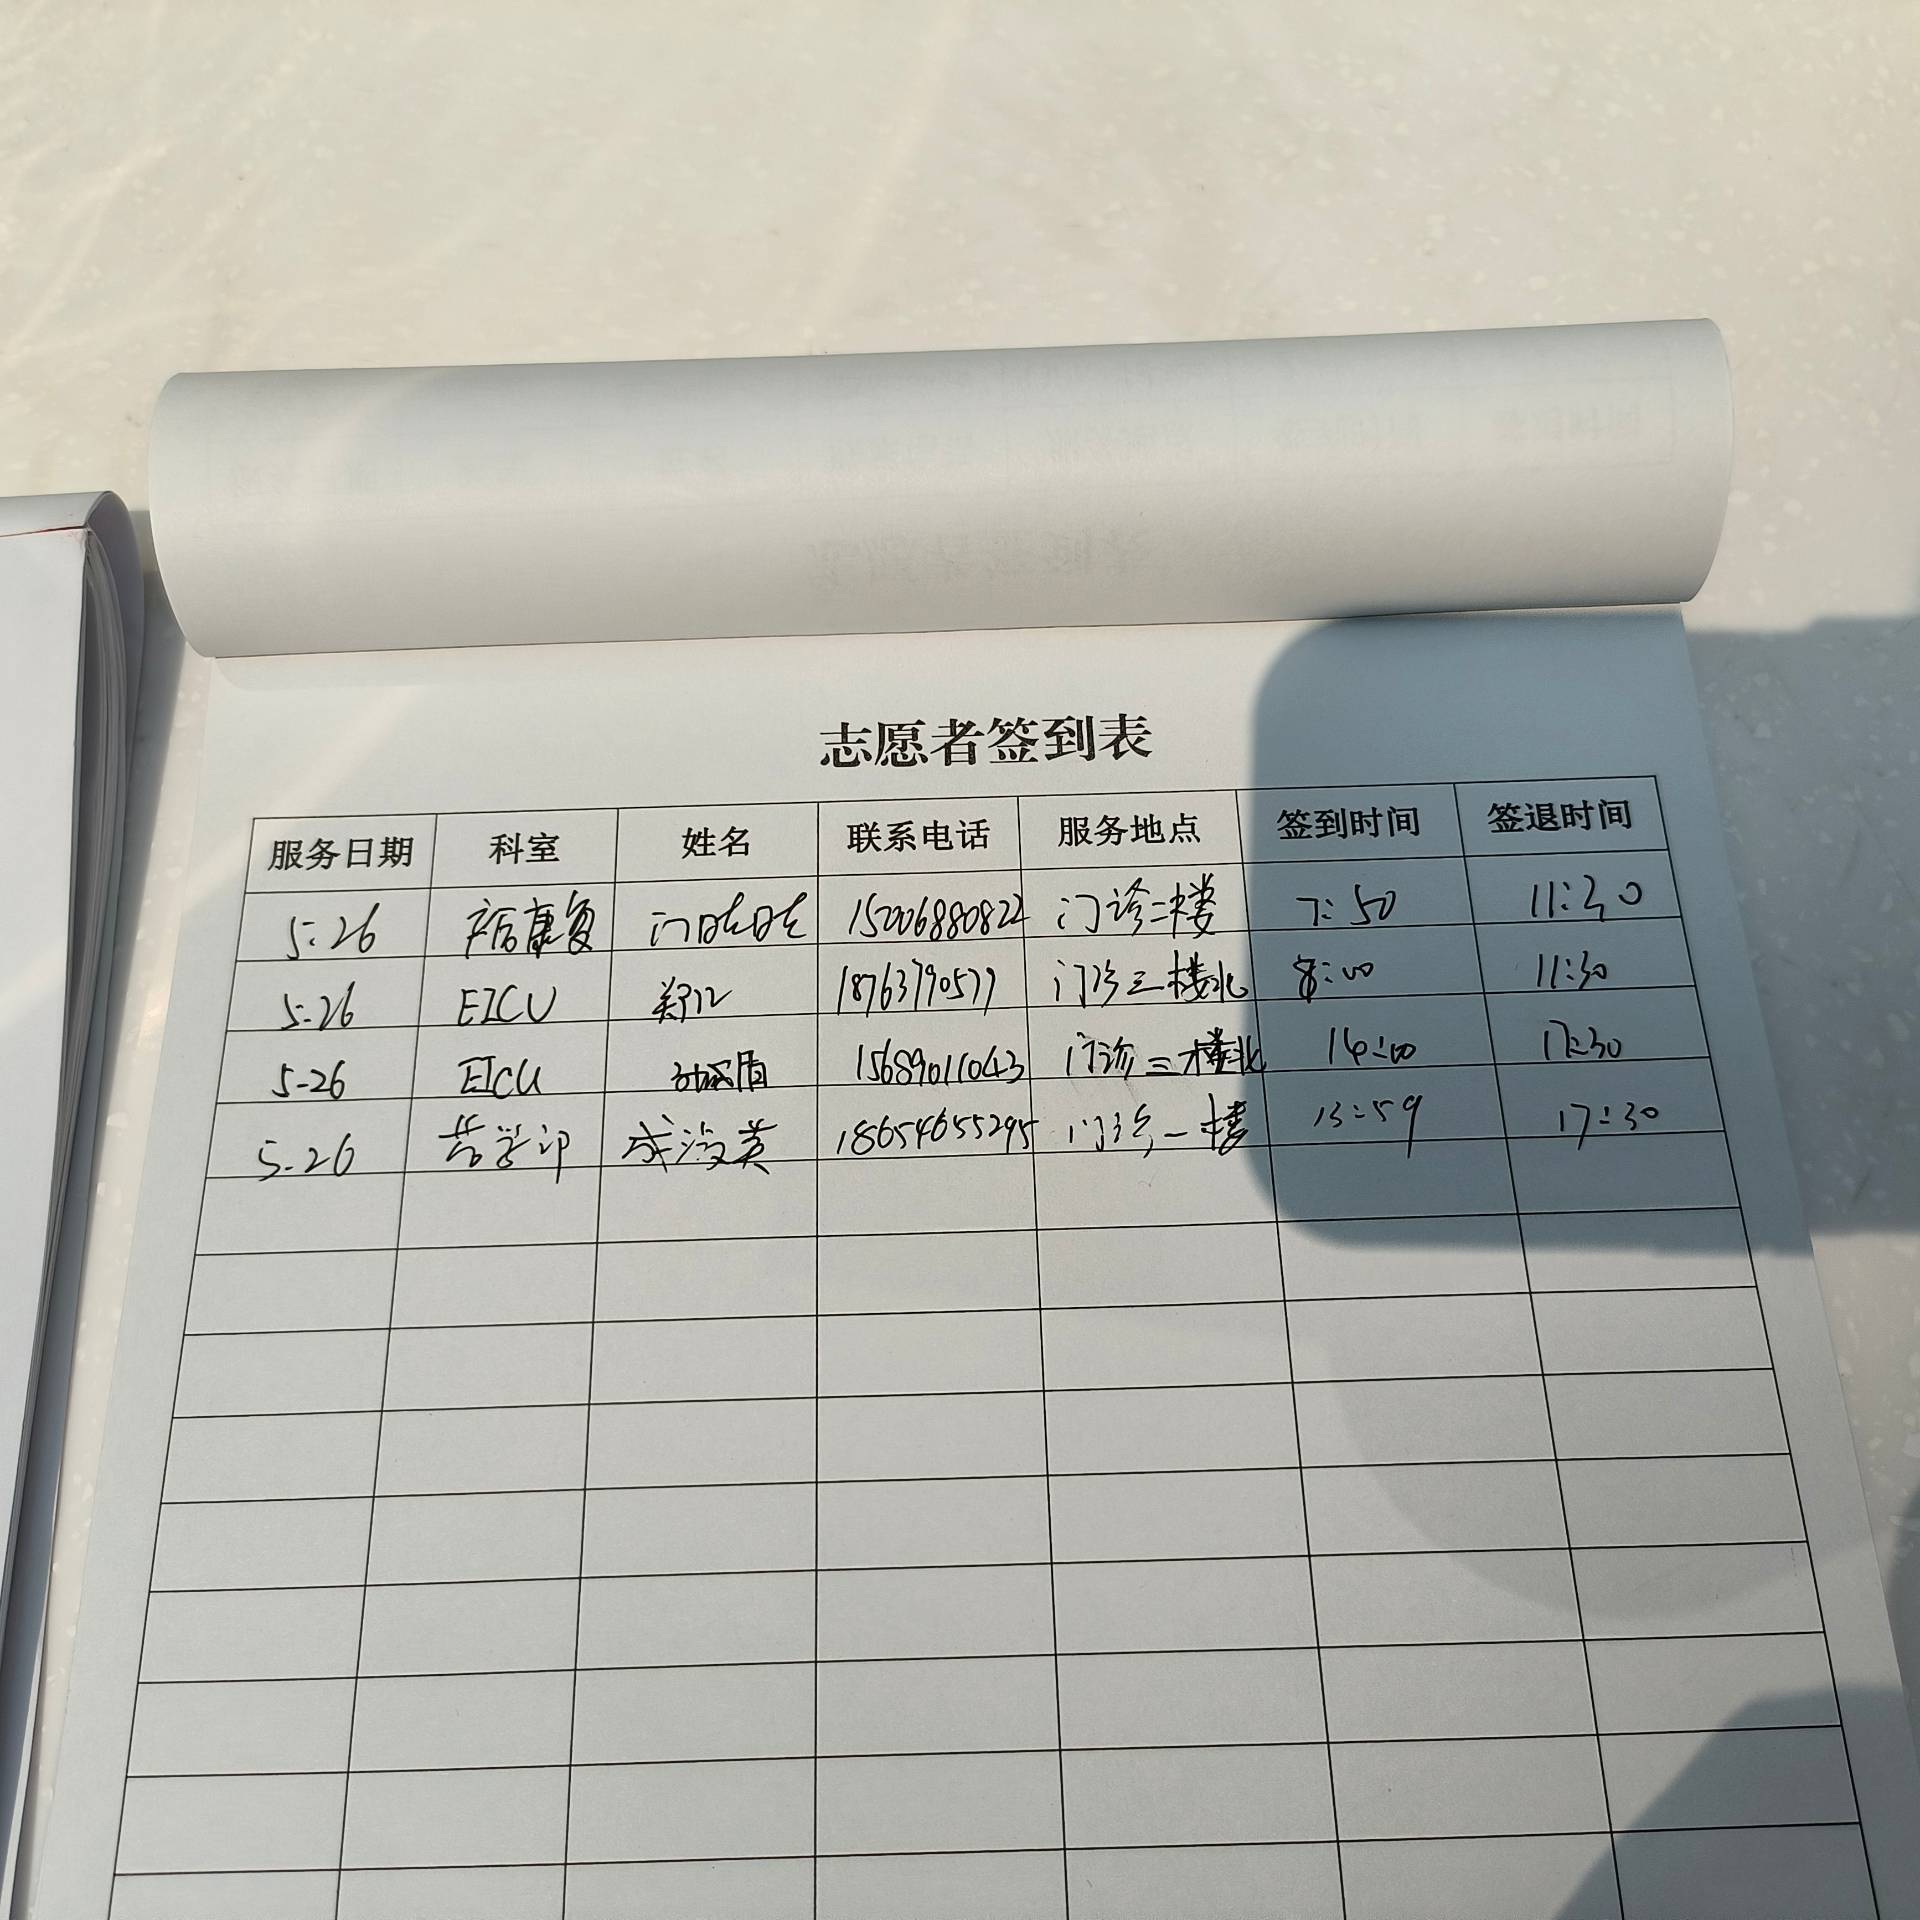 志愿者签到表
服务日期 科室 姓名 联系电话 服务地点 签到时间 签退时间
5:26 产后康复 门晓晓 15006880822 门诊二楼 7:50 11:30
5:26 EICU 18763790577 门诊三楼北 8:00 11:30
5-26 EICU 15689011043 门诊二楼北 14:00 17:30
5-26 药学部 18654655295 门诊一楼 13:59 17:30